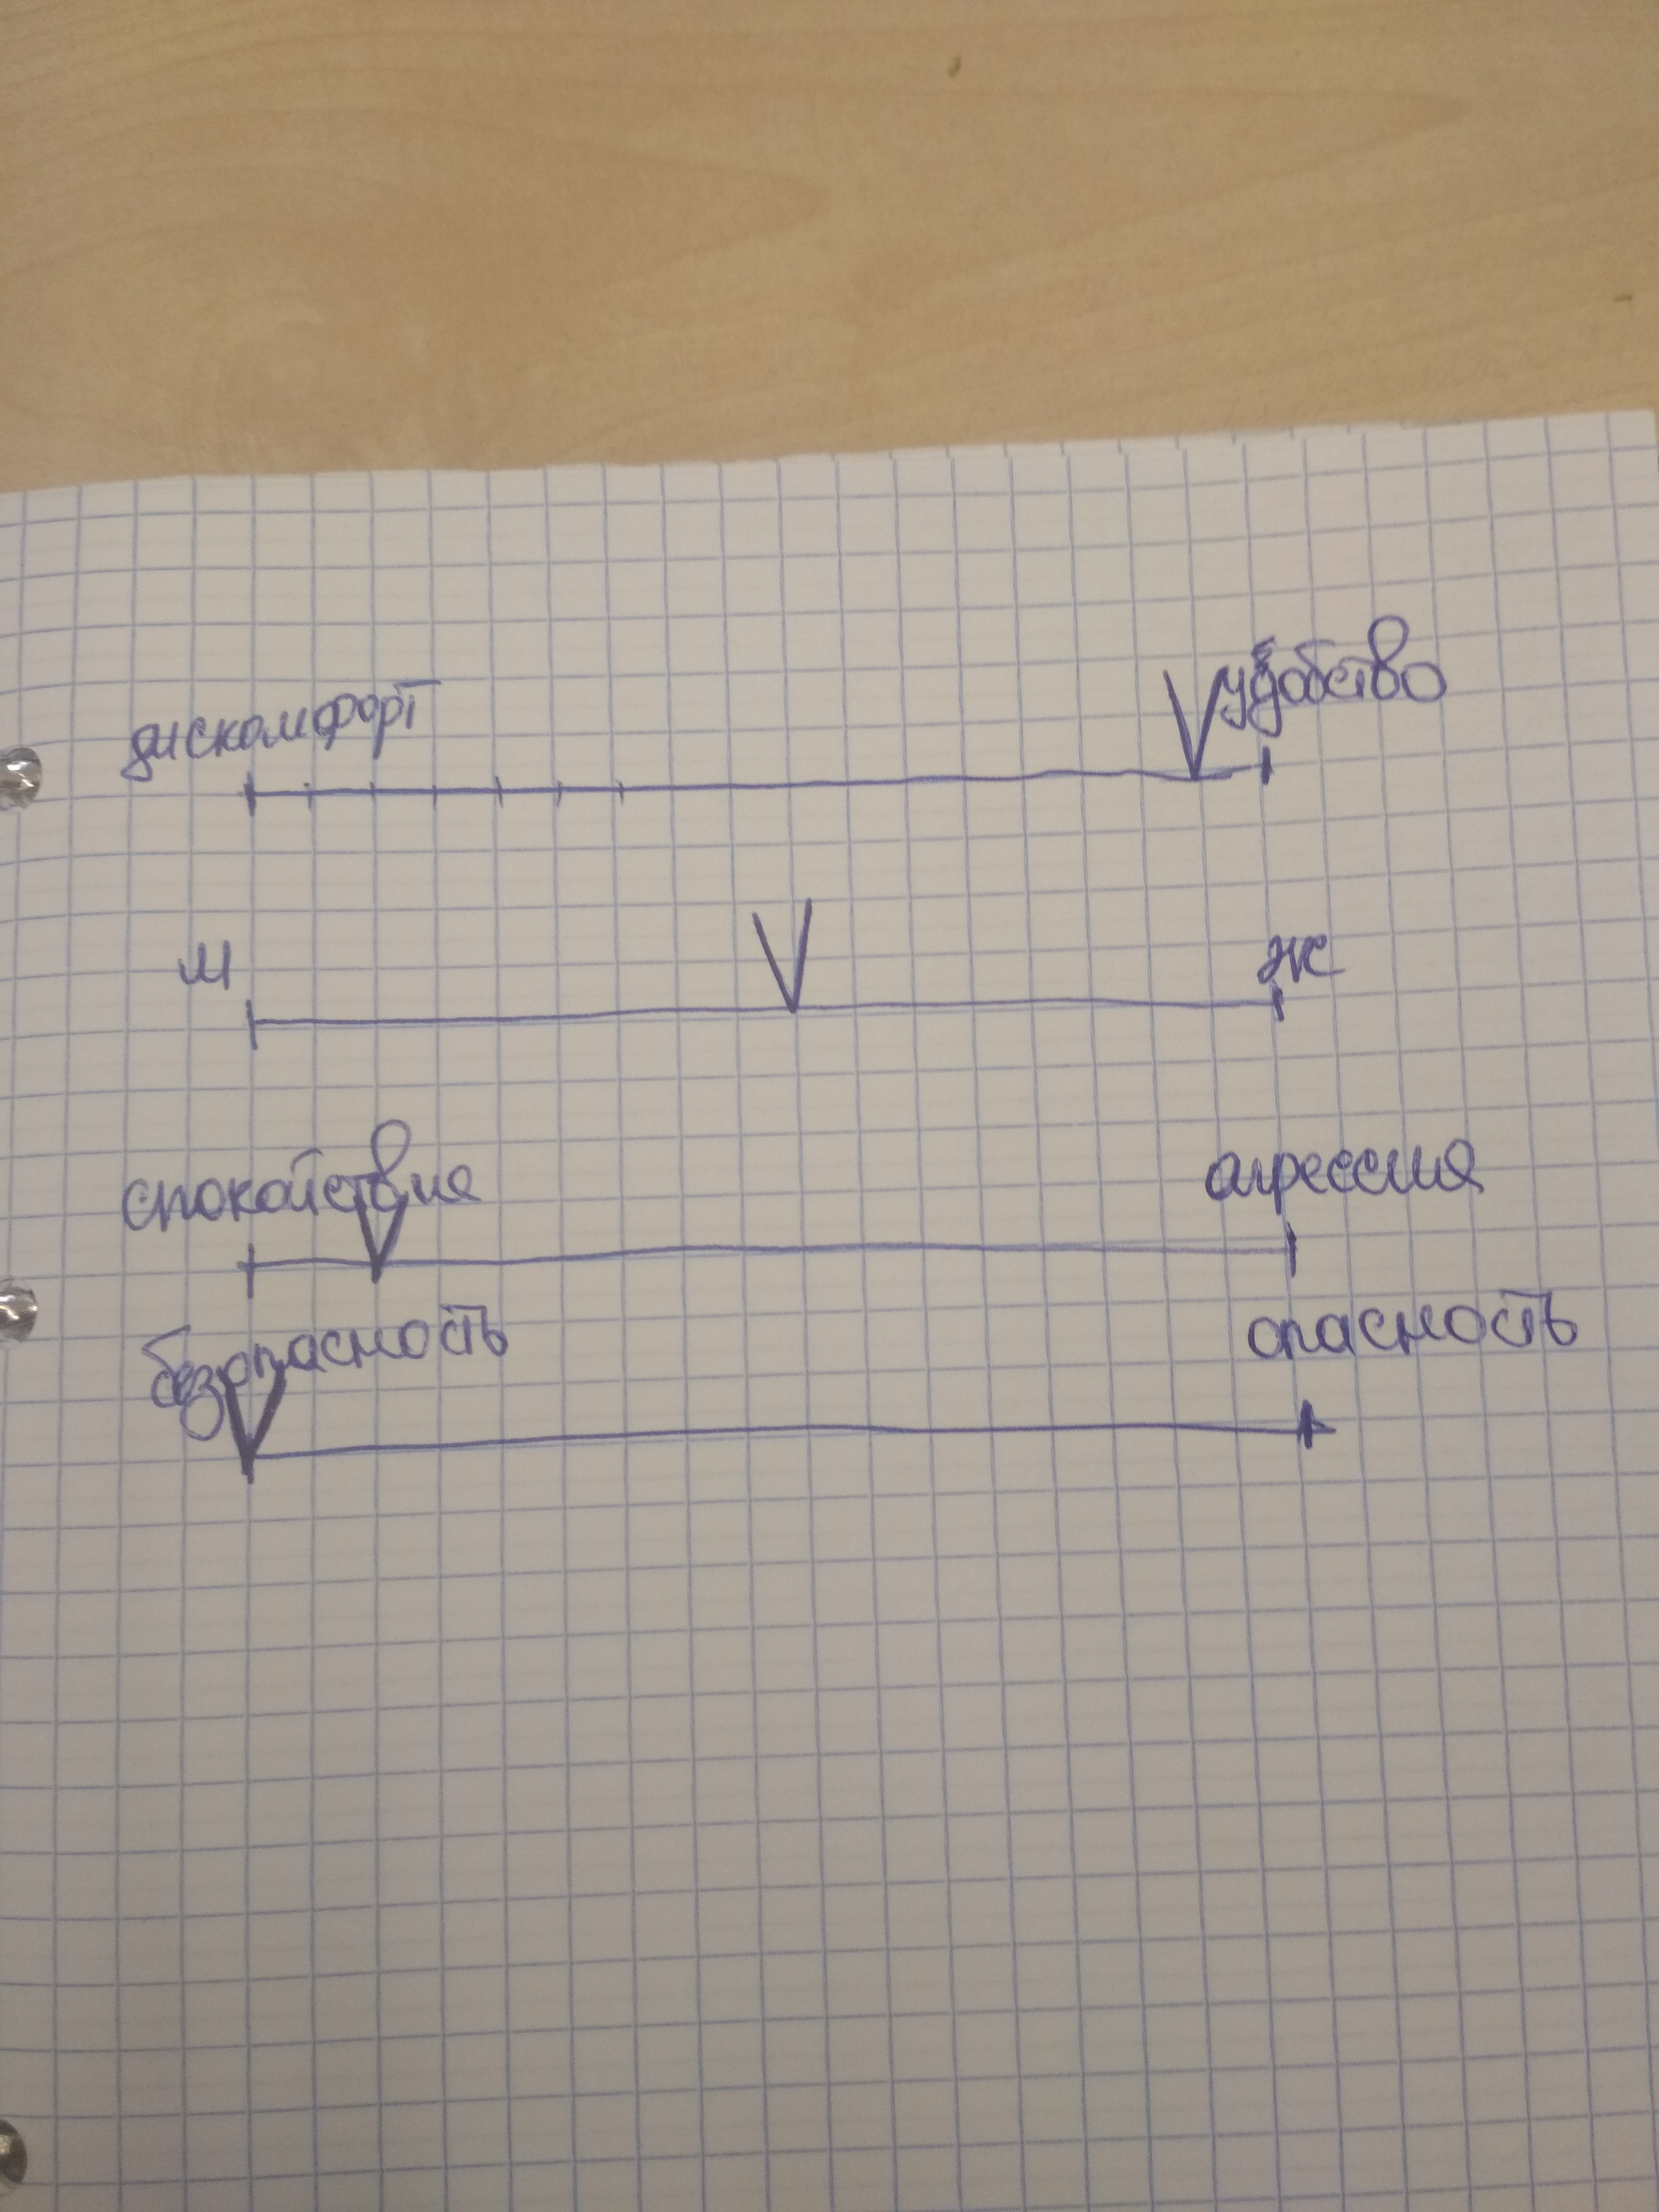 дискомфорт удобство
м ж
спокойствие агрессия
безопасность опасность